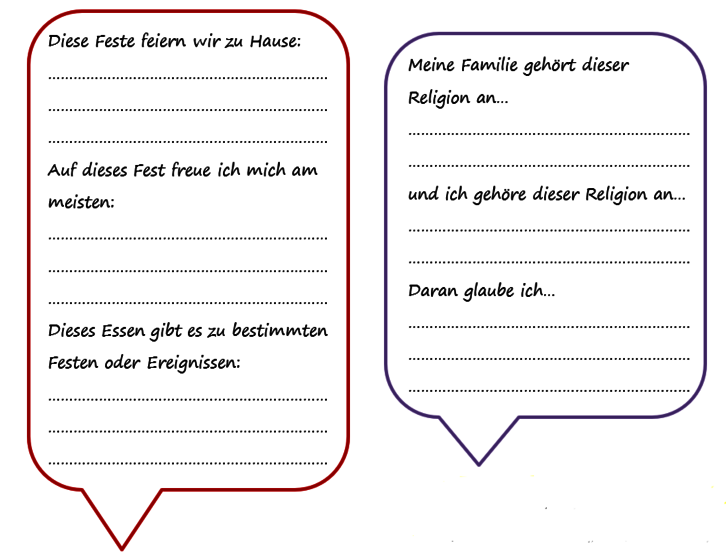 Diese Feste feiern wir zu Hause:
................................................................
................................................................
................................................................
Auf dieses Fest freue ich mich am
meisten:
................................................................
................................................................
................................................................
Dieses Essen gibt es zu bestimmten
Festen oder Ereignissen:
................................................................
................................................................
................................................................
Meine Familie gehört dieser
Religion an...
................................................................
................................................................
und ich gehöre dieser Religion an...
................................................................
................................................................
Daran glaube ich...
................................................................
................................................................
................................................................